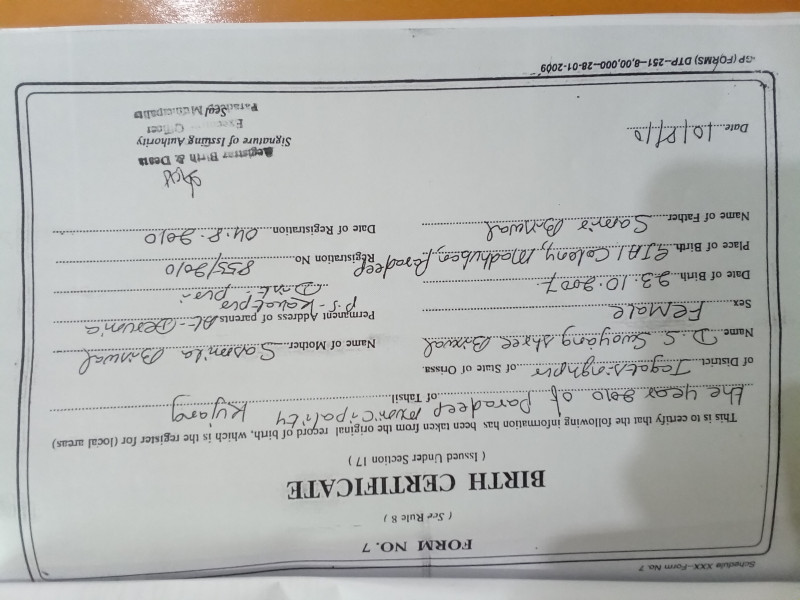 Schedule XXX-Form No. 7
FORM NO. 7
( See Rule 8 )
BIRTH CERTIFICATE
( Issued Under Section 17 )
This is to certify that the following information has been taken from the original record of birth, which is the register for (local areas)
the year 2010 of Paradeep municipality of Tahsil Kujang
of District Jagatsinghpur of State of Orissa.
Name D. S. Suryang shree Biswal Name of Mother Sasmita Biswal
Sex Female Permanent Address of parents At- Deruma
P.S- Kakatpur
Date of Birth 23.10.2007 Dist- puri
Place of Birth Colony, Madhuban, Paradeep Registration No. 855/2010
Name of Father Samir Biswal Date of Registration 04.8.2010
Registrar Birth & Death
Date 10/8/10 Signature of Issuing Authority
Officer
Paradeep Municipality
GP (FORMS) DTP-251-8,00,000-28-01-2009